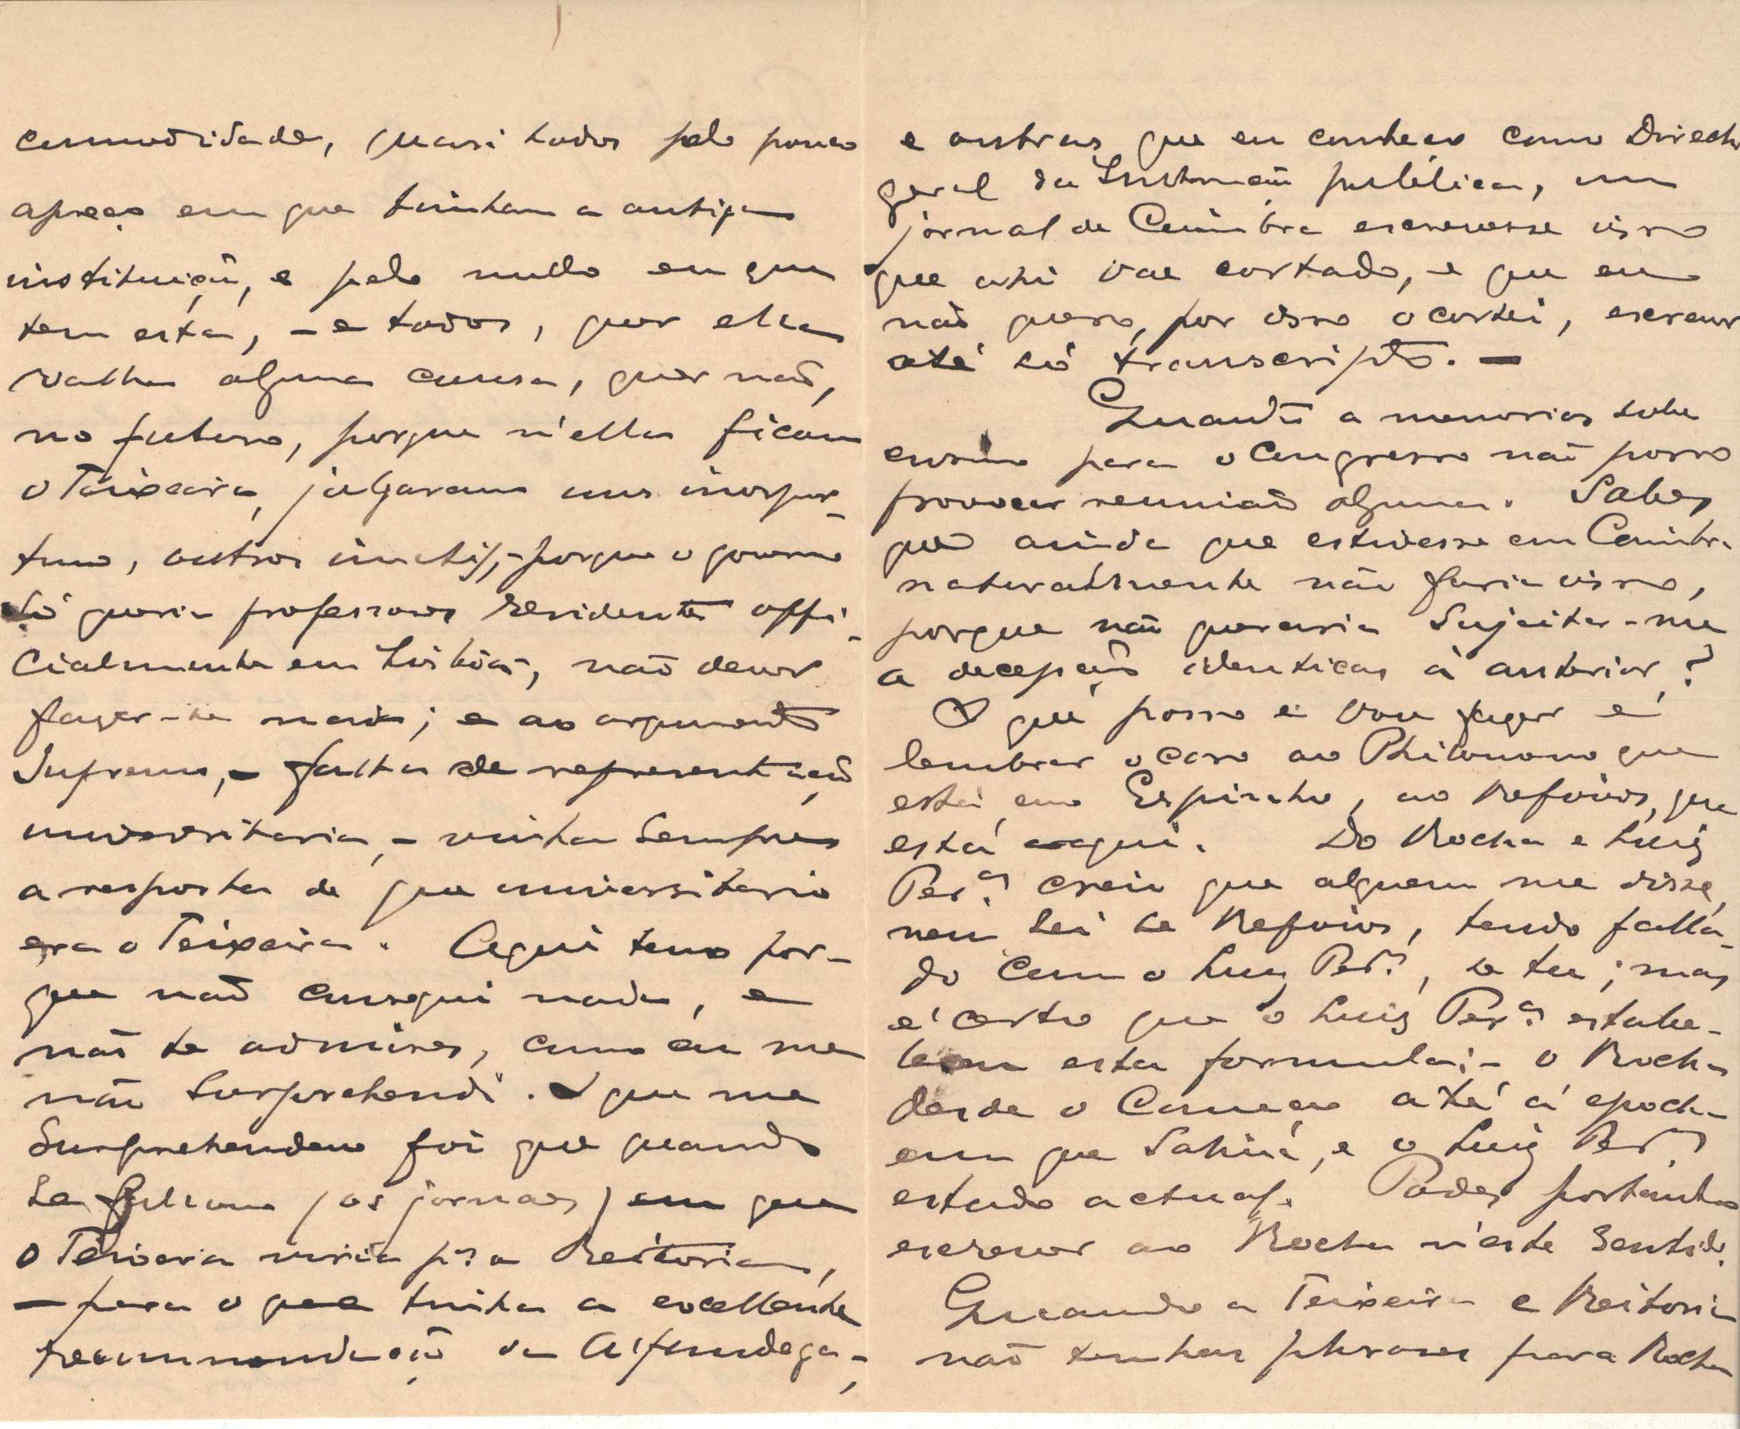 commodidade, quasi todos pelo pouco
apreço em que tinham a antiga
instituição, e pelo nullo em que
tem esta, - e todos, quer ella
valha alguma cousa, quer não,
no futuro, porque n'ella ficam
o Teixeira, julgaram uns inoppor-
tuno, outros inutil, - porque o governo
só queria professores residentes offi-
cialmente em Lisboa -, não dever
fazer-se nada; e ao argumento
supremo, - falta de representação
universitaria, - vinha sempre
a resposta de que universitario
era o Teixeira. Aqui tens por-
que não consegui nada, e
não te admires, como eu me
não surprehendi. O que me
surprehendeu foi que quando
se fallou (os jornaes) em que
o Teixeira viria p.ª a Reitoria,
- para o que tinha a excellente
recommendação da Alfandega -,
e outras que eu conheço como Director
geral da Instrucção publica, um
jornal de Coimbra escrevesse isso
que ahi vae cortado, e que eu
não quero, por isso o cortei, escrever
até só transcripto. -
Quanto a memorias sobre
ensino para o Congresso não posso
provocar reunião alguma. Sabes
que ainda que estivesse em Coimbra
naturalmente não faria isso,
porque não quereria sujeitar-me
a decepções identicas á anterior?
O que posso e vou fazer é
lembrar o caso ao Philomeno que
está em Espinho, ao Refoios, que
está aqui. Do Rocha e Luiz
Per.ª creio que alguem me disse,
nem sei se Refoios, tendo falla-
do com o Luiz Per.ª, se tu; mas
é certo que o Luiz Per.ª estabe-
leceu esta formula: - o Rocha
desde o começo até á epocha
em que sahiu, e o Luiz Per.ª
estado actual. Podes portanto
escrever ao Rocha n'este sentido.
Quando a Teixeira e Reitoria
não tenhas phrases para Rocha